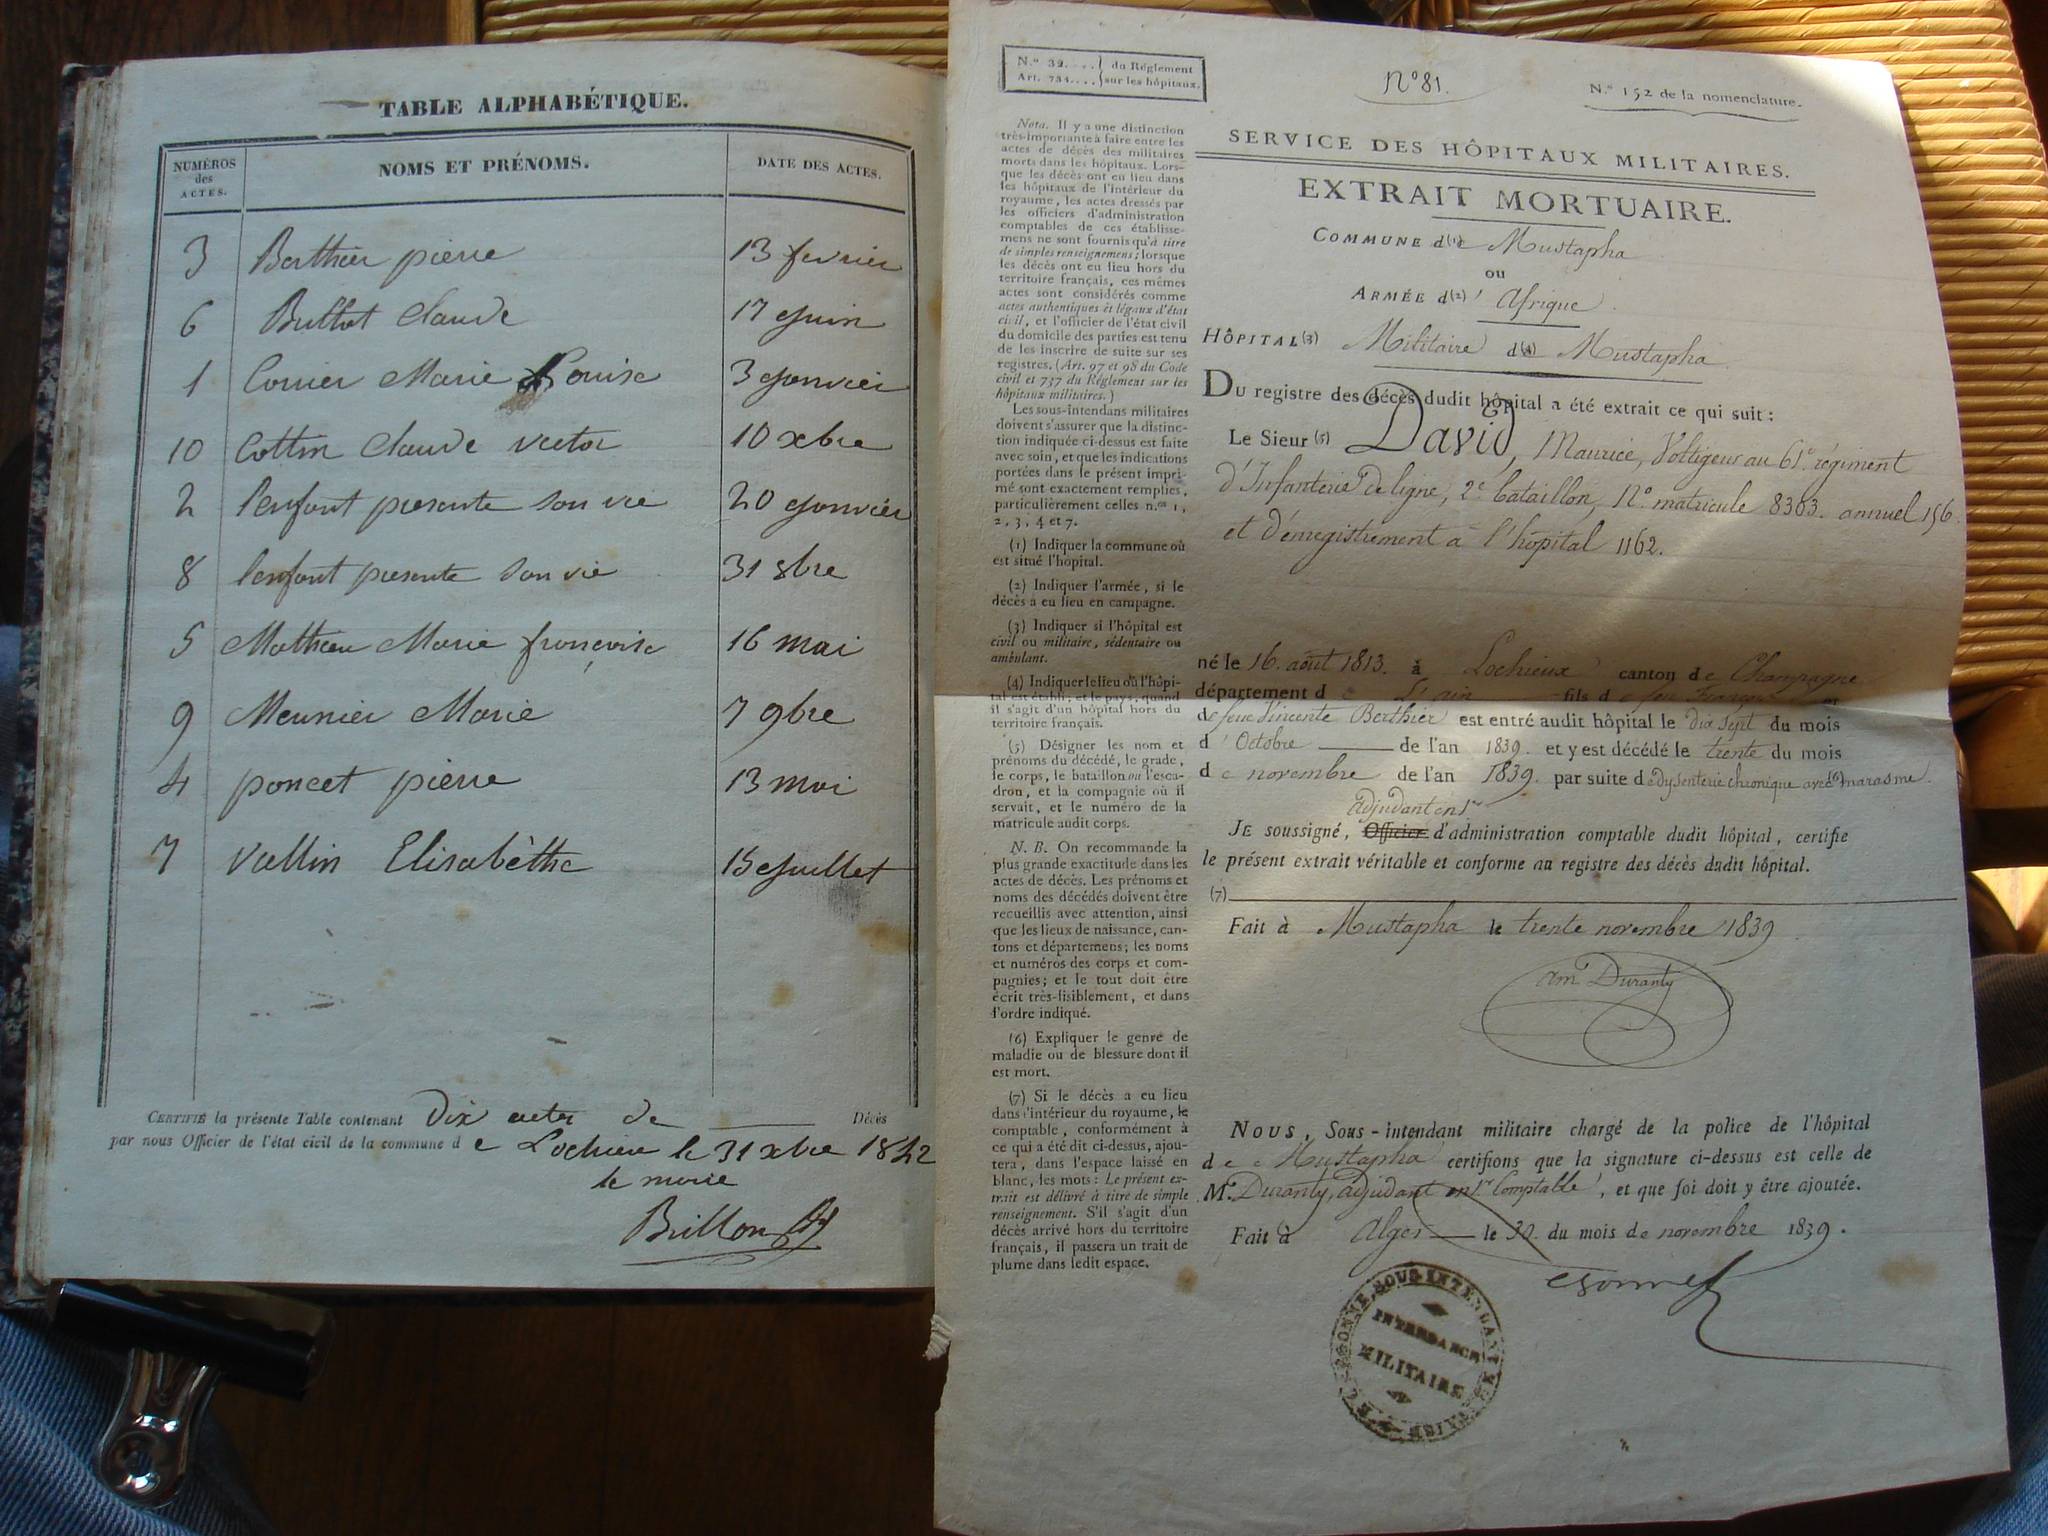 TABLE ALPHABÉTIQUE.
NUMÉROS des ACTES. NOMS ET PRÉNOMS. DATE DES ACTES.
3 Berthier pierre 13 fevrier
6 Bullot Claude 17 juin
1 Cornier Marie Louise 3 janvier
10 Cottin Claude victor 10 xbre
2 l'enfant presente son vie 20 janvier
8 l'enfant presente son vie 31 8bre
5 Mathieu Marie françoise 16 mai
9 Meunier Marie 7 9bre
4 poncet pierre 13 mai
7 Vallin Elisabèthe 15 juillet
CERTIFIÉ la présente Table contenant Dix actes de Décès
par nous Officier de l'état civil de la commune de Lochieu le 31 xbre 1842
le maire
Brillon
N.º 32.... } du Réglement
Art. 734.... } sur les hôpitaux.
Nº 81.
N.º 152 de la nomenclature.
Nota. Il y a une distinction
très-importante à faire entre les
actes de décès des militaires
morts dans les hôpitaux. Lors-
que les décès ont eu lieu dans
les hôpitaux de l'intérieur du
royaume, les actes dressés par
les officiers d'administration
comptables de ces établisse-
mens ne sont fournis qu'à titre
de simples renseignemens; lorsque
les décès ont eu lieu hors du
territoire français, ces mêmes
actes sont considérés comme
actes authentiques et légaux d'état
civil, et l'officier de l'état civil
du domicile des parties est tenu
de les inscrire de suite sur ses
registres. (Art. 97 et 98 du Code
civil et 737 du Réglement sur les
hôpitaux militaires.)
Les sous-intendans militaires
doivent s'assurer que la distinc-
tion indiquée ci-dessus est faite
avec soin, et que les indications
portées dans le présent impri-
mé sont exactement remplies,
particulièrement celles n.os 1,
2, 3, 4 et 7.
(1) Indiquer la commune où
est situé l'hôpital.
(2) Indiquer l'armée, si le
décès a eu lieu en campagne.
(3) Indiquer si l'hôpital est
civil ou militaire, sédentaire ou
ambulant.
(4) Indiquer le lieu où l'hôpi-
tal est établi; et le pays, quand
il s'agit d'un hôpital hors du
territoire français.
(5) Désigner les nom et
prénoms du décédé, le grade,
le corps, le bataillon ou l'esca-
dron, et la compagnie où il
servait, et le numéro de la
matricule audit corps.
N. B. On recommande la
plus grande exactitude dans les
actes de décès. Les prénoms et
noms des décédés doivent être
recueillis avec attention, ainsi
que les lieux de naissance, can-
tons et départemens; les noms
et numéros des corps et com-
pagnies; et le tout doit être
écrit très-lisiblement, et dans
l'ordre indiqué.
(6) Expliquer le genre de
maladie ou de blessure dont il
est mort.
(7) Si le décès a eu lieu
dans l'intérieur du royaume, le
comptable, conformément à
ce qui a été dit ci-dessus, ajou-
tera, dans l'espace laissé en
blanc, les mots: Le présent ex-
trait est délivré à titre de simple
renseignement. S'il s'agit d'un
décès arrivé hors du territoire
français, il passera un trait de
plume dans ledit espace.
SERVICE DES HÔPITAUX MILITAIRES.
EXTRAIT MORTUAIRE.
COMMUNE d(1)e Mustapha
ou
ARMÉE d(2)' Afrique
HÔPITAL (3) Militaire d(4)e Mustapha
DU registre des décès dudit hôpital a été extrait ce qui suit:
Le Sieur (5) David, Maurice, Voltigeur au 61e. régiment
d'Infanterie de ligne, 2e. bataillon, Nº. matricule 8363. annuel 156
et d'enregistrement à l'hôpital 1162.
né le 16. août 1813. à Lochieux canton de Champagne
département de L'ain fils de feu François et
de feue Vincente Berthier est entré audit hôpital le dix sept du mois
d'Octobre de l'an 1839. et y est décédé le trente du mois
de novembre de l'an 1839. par suite de dysenterie chronique avec marasme.
adjudant en 1er
JE soussigné, Officier d'administration comptable dudit hôpital, certifie
le présent extrait véritable et conforme au registre des décès dudit hôpital.
(7)
Fait à Mustapha le trente novembre 1839
am. Duranty
NOUS, Sous-intendant militaire chargé de la police de l'hôpital
de Mustapha certifions que la signature ci-dessus est celle de
M.r Duranty, adjudant en 1er Comptable, et que foi doit y être ajoutée.
Fait à Alger le 30. du mois de novembre 1839.
INTENDANCE
MILITAIRE